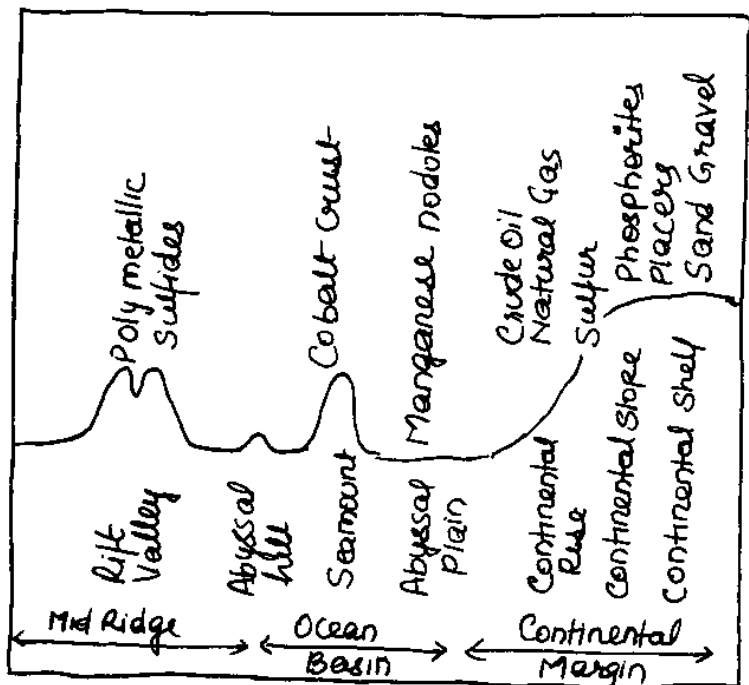 Poly metallic
Sulfides
Cobalt Crust
Manganese nodules
Crude Oil
Natural Gas
Sulfur
Phosphorites
Placers
Sand Gravel
Rift
Valley
Abyssal
hill
Seamount
Abyssal
Plain
Continental
Rise
Continental Slope
Continental Shelf
Mid Ridge
Ocean
Basin
Continental
Margin